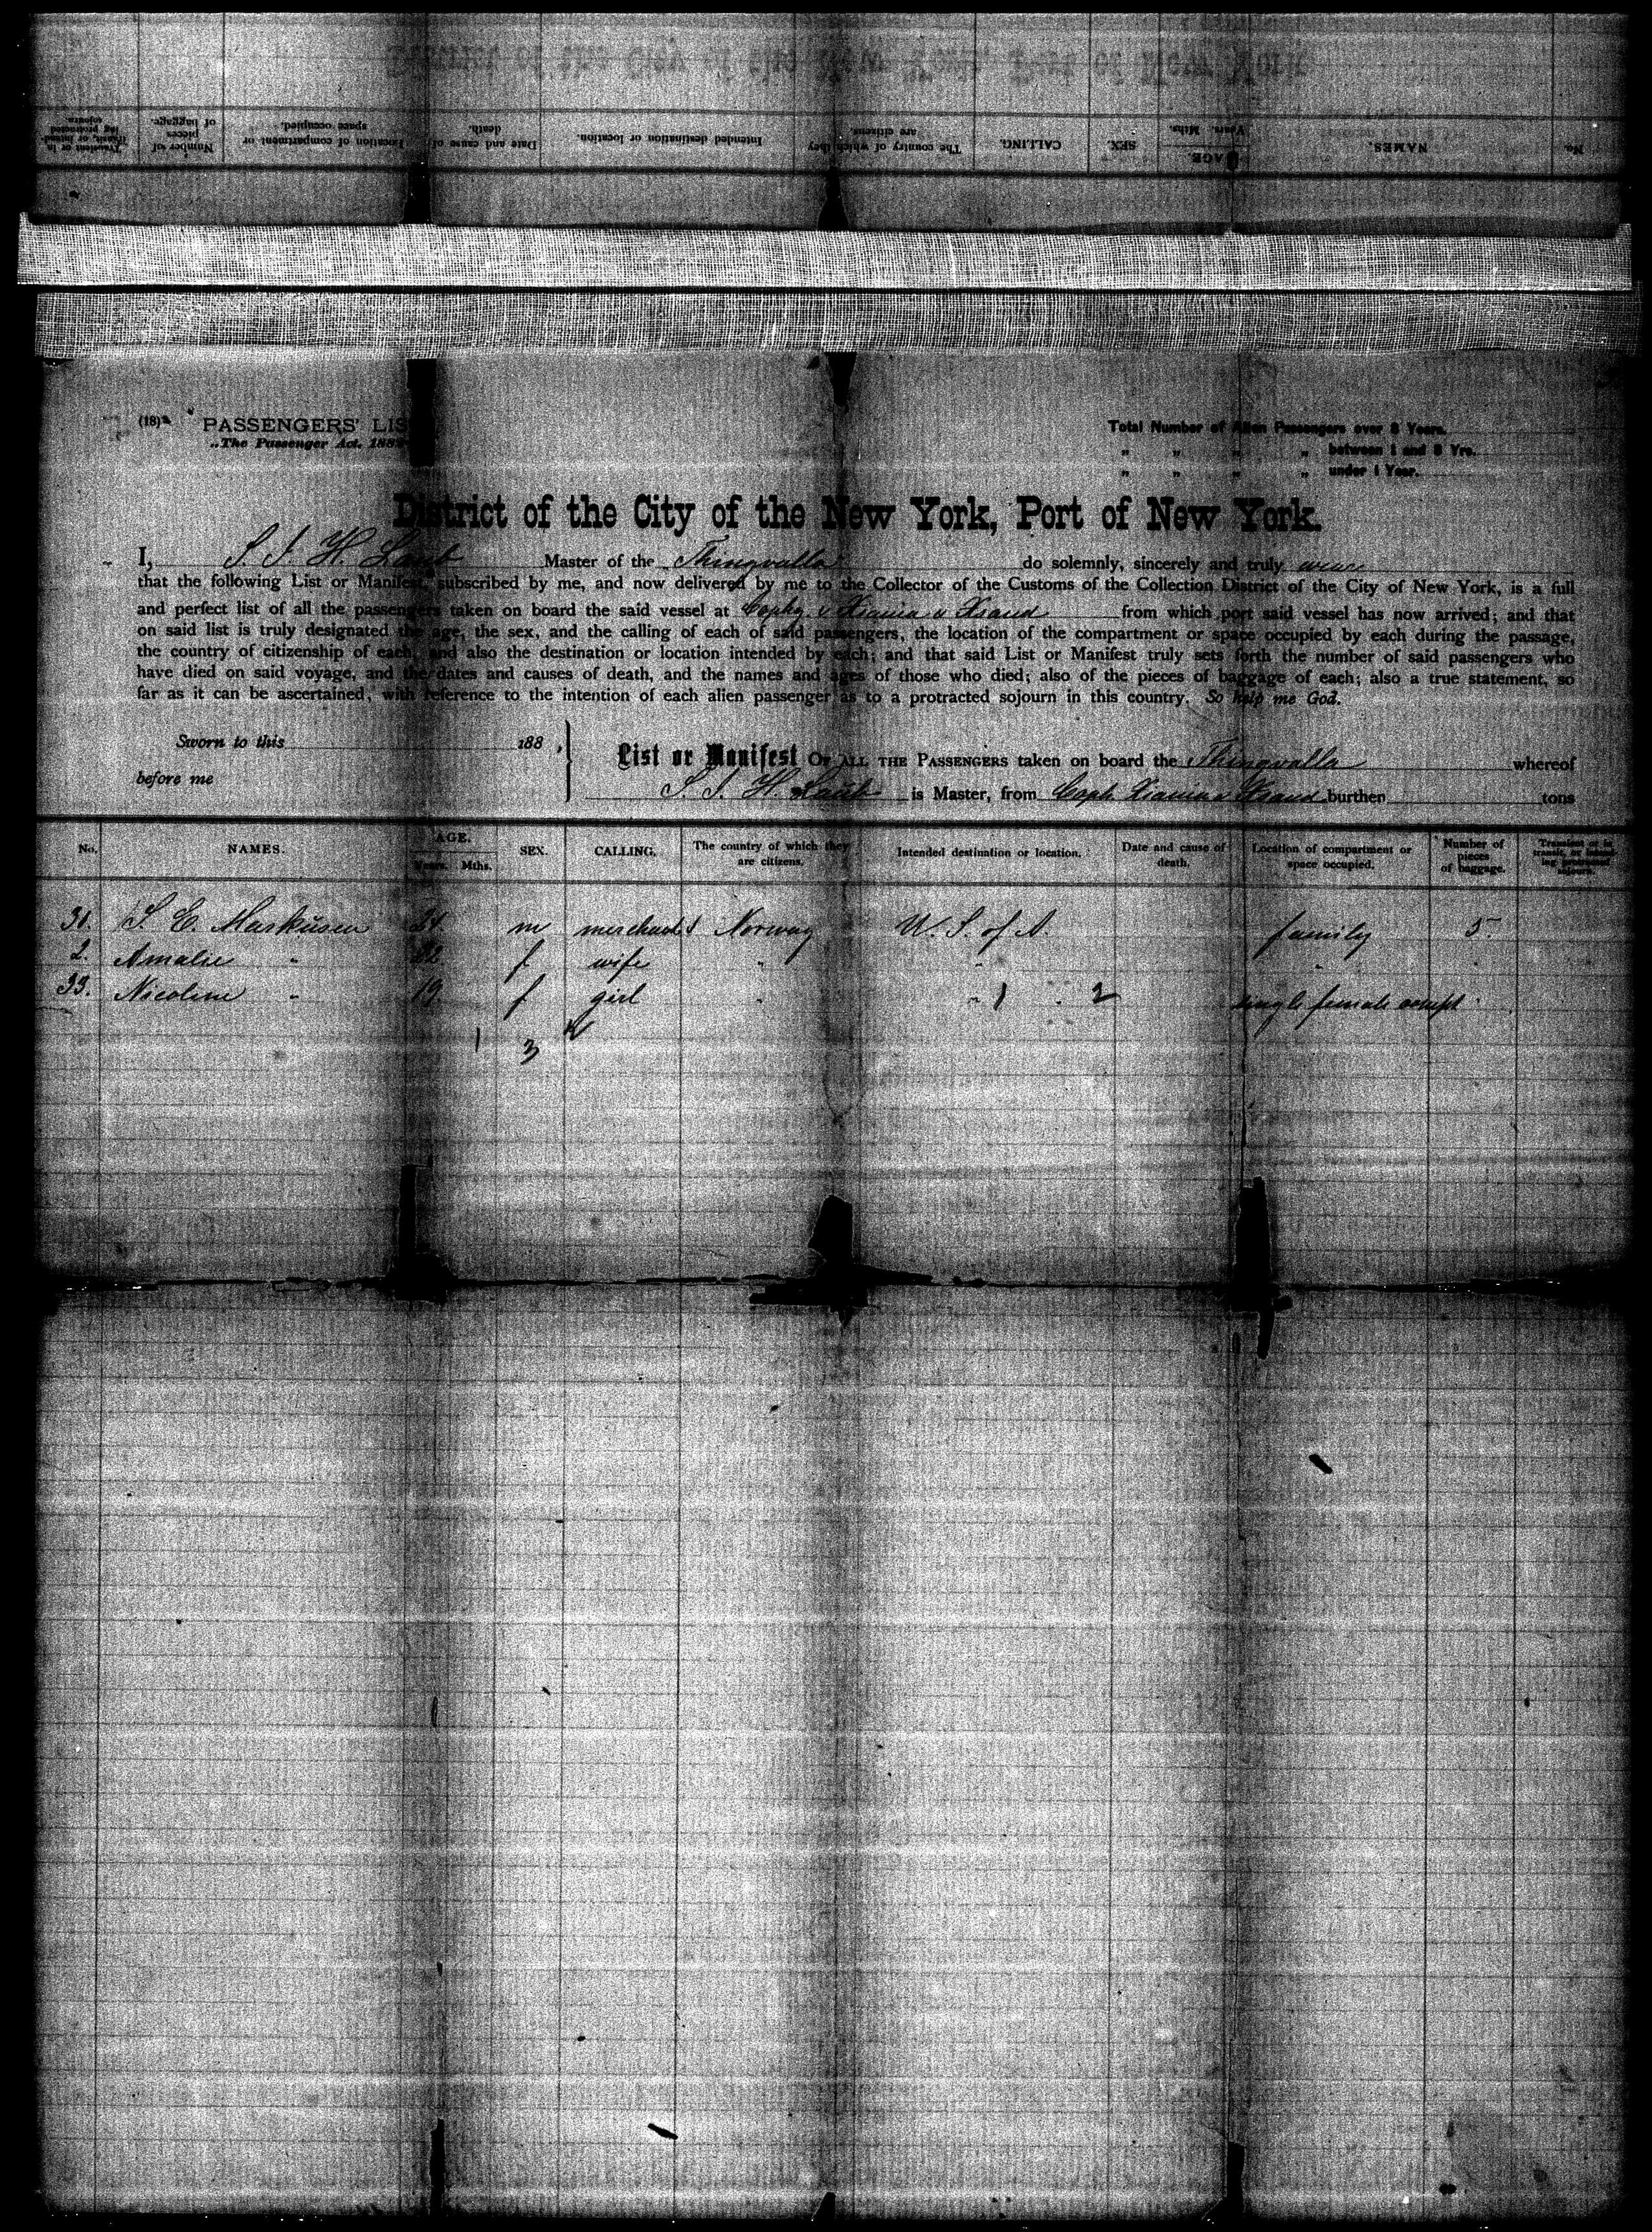 No.
NAMES.
AGE.
Years. Mths.
SEX.
CALLING.
The country of which they are citizens.
Intended destination or location.
Date and cause of death.
Location of compartment or space occupied.
Number of pieces of baggage.
Transient or in transit, or intending protracted sojourn.
(18)
PASSENGERS' LIS
„The Passenger Act. 188
Total Number of Alien Passengers over 8 Years.
„ „ „ „ between 1 and 8 Yrs.
„ „ „ „ under 1 Year.
District of the City of the New York, Port of New York.
I, S. J. H. Laub Master of the Thingvalla do solemnly, sincerely and truly swear
that the following List or Manifest, subscribed by me, and now delivered by me to the Collector of the Customs of the Collection District of the City of New York, is a full
and perfect list of all the passengers taken on board the said vessel at Cophg. v Xiania v Xsand from which port said vessel has now arrived; and that
on said list is truly designated the age, the sex, and the calling of each of said passengers, the location of the compartment or space occupied by each during the passage,
the country of citizenship of each, and also the destination or location intended by each; and that said List or Manifest truly sets forth the number of said passengers who
have died on said voyage, and the dates and causes of death, and the names and ages of those who died; also of the pieces of baggage of each; also a true statement, so
far as it can be ascertained, with reference to the intention of each alien passenger as to a protracted sojourn in this country. So help me God.
Sworn to this 188 ,
before me
List or Manifest OF ALL THE PASSENGERS taken on board the Thingvalla whereof
S. J. H. Laub is Master, from Coph. Xiania v Xsand burthen tons
No. NAMES. AGE. SEX. CALLING. The country of which they are citizens. Intended destination or location. Date and cause of death. Location of compartment or space occupied. Number of pieces of baggage. Transient or in transit, or intending protracted sojourn.
Years. Mths.
31. S. C. Markusen 24 m merchant Norway U. S. of A. family 5.
2. Amalie " 22 f wife " "
33. Nicoline " 19 f girl " " 1 2 single female compt
1 3